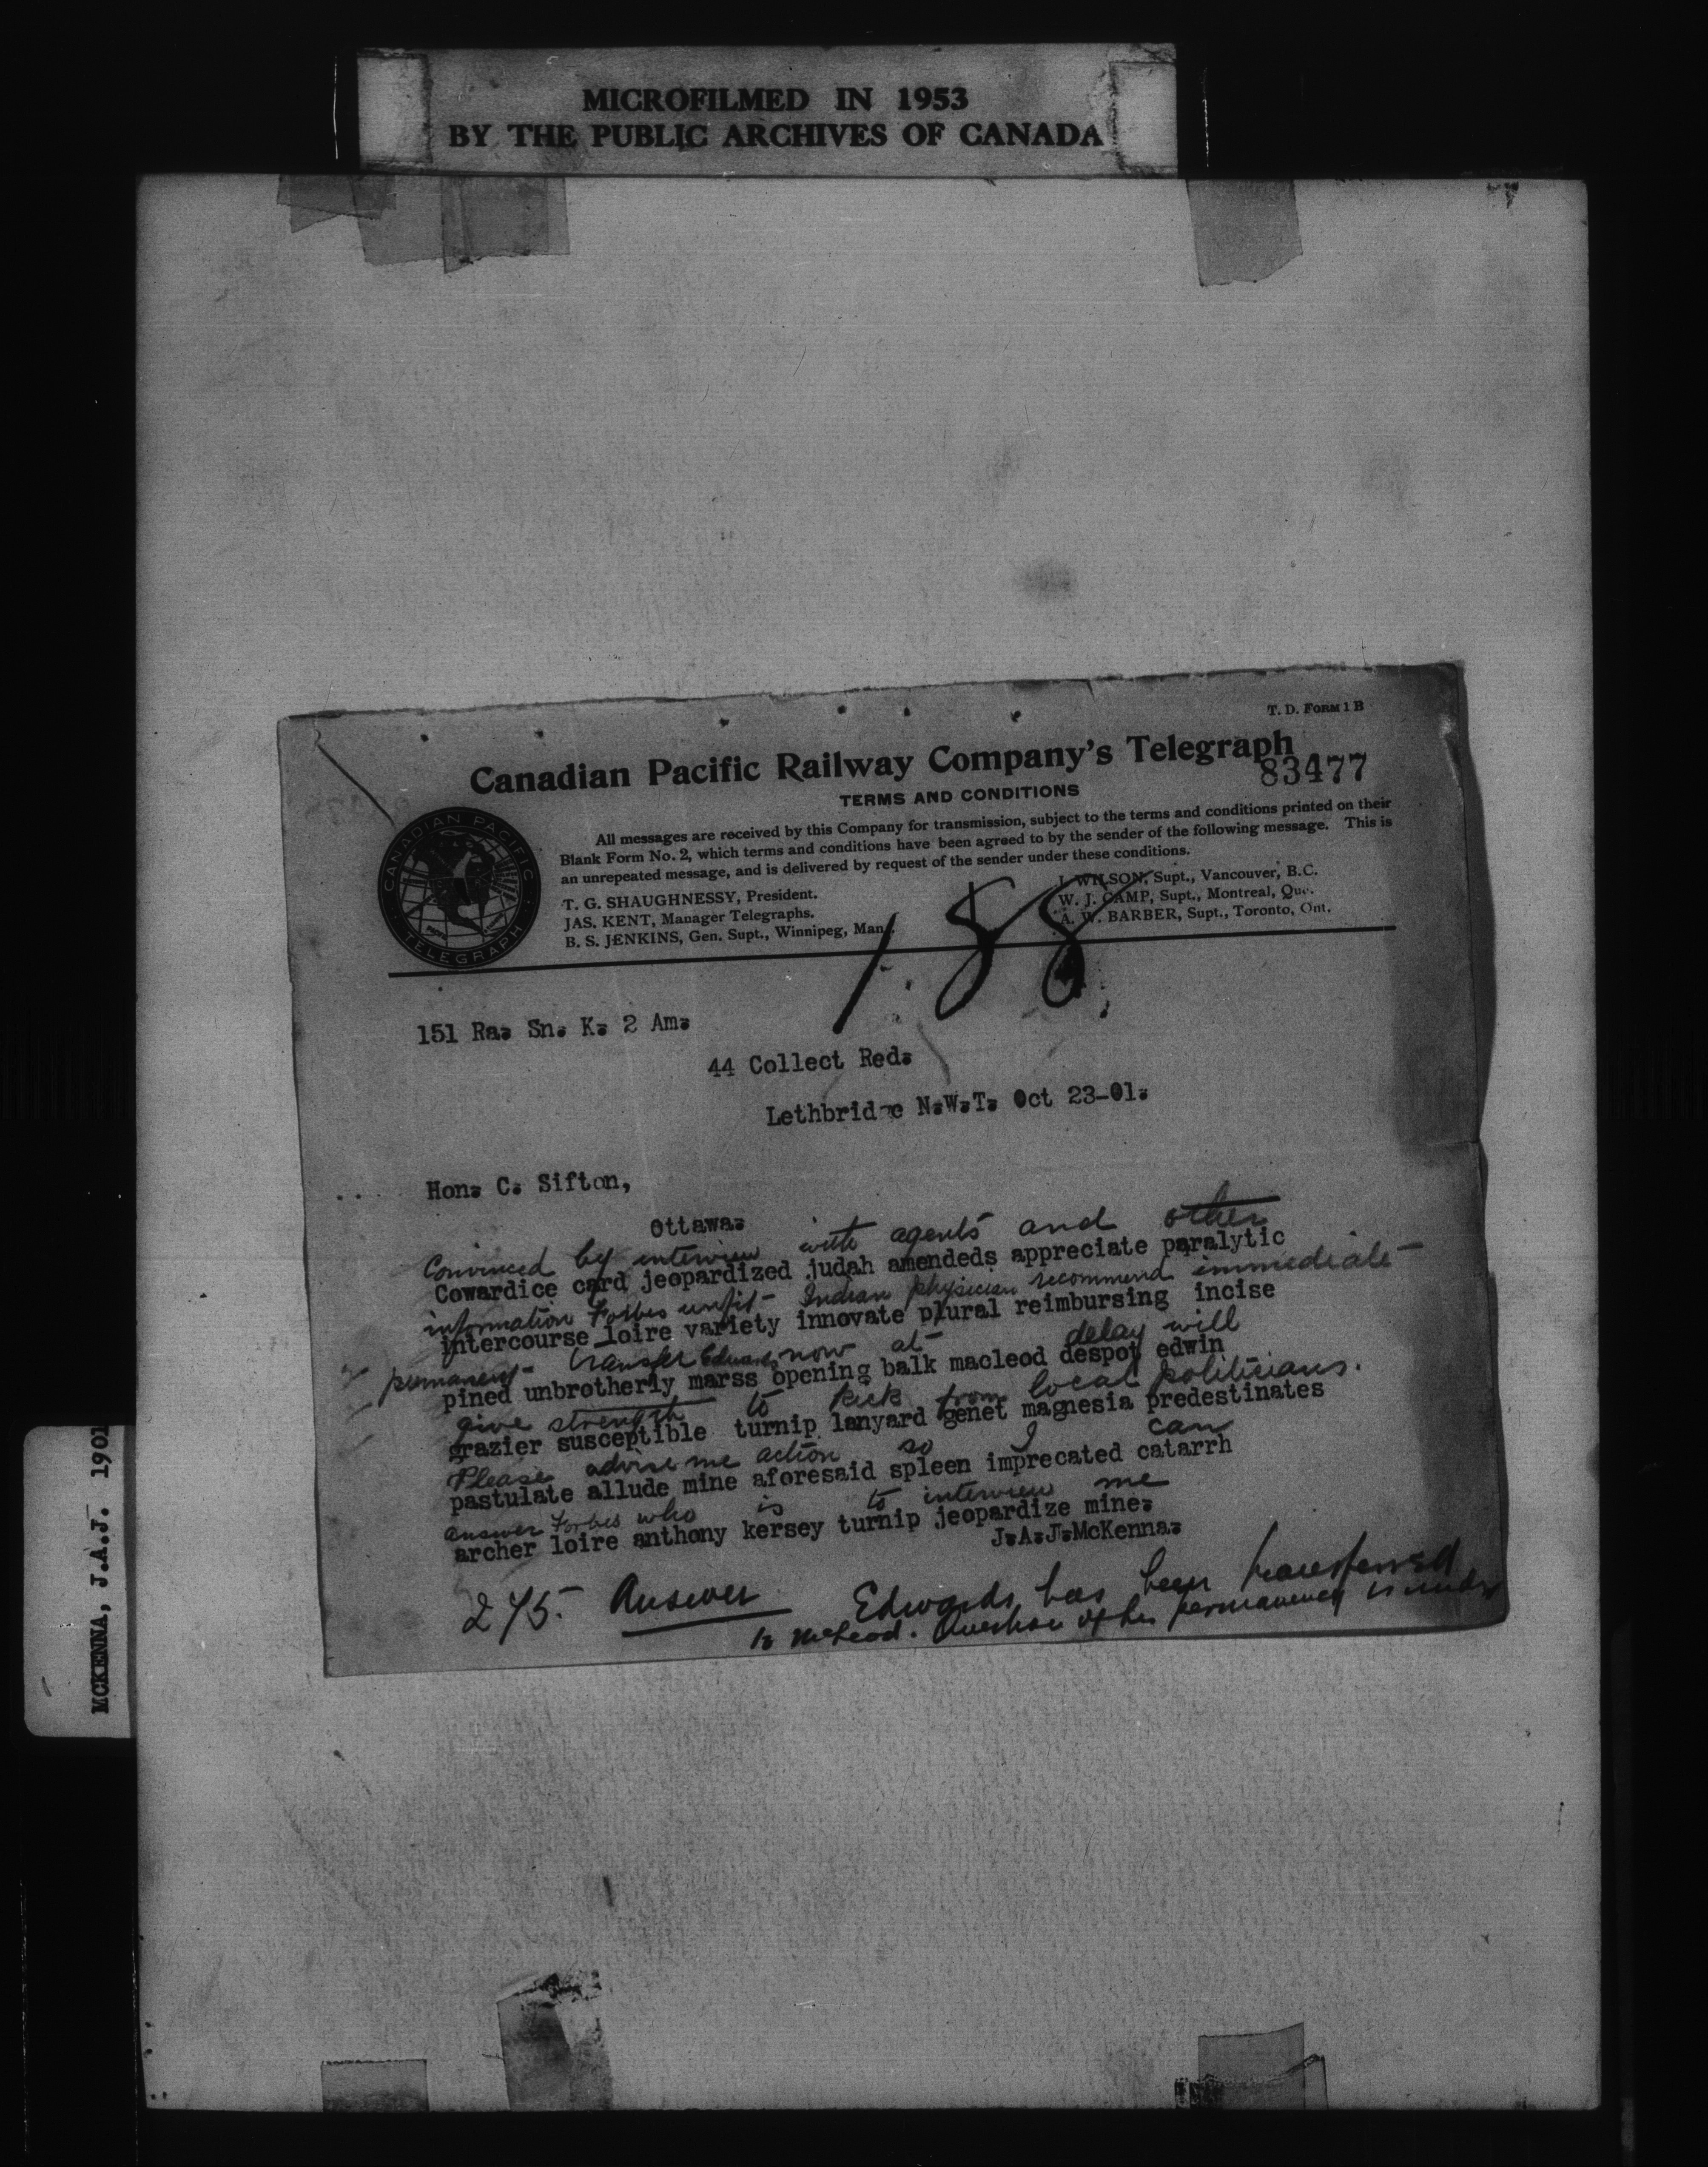 MICROFILMED IN 1953
BY THE PUBLIC ARCHIVES OF CANADA
T. D. FORM 1 B
Canadian Pacific Railway Company's Telegraph
83477
TERMS AND CONDITIONS
CANADIAN PACIFIC
TELEGRAPH
All messages are received by this Company for transmission, subject to the terms and conditions printed on their
Blank Form No. 2, which terms and conditions have been agreed to by the sender of the following message. This is
an unrepeated message, and is delivered by request of the sender under these conditions.
T. G. SHAUGHNESSY, President.
JAS. KENT, Manager Telegraphs.
B. S. JENKINS, Gen. Supt., Winnipeg, Man.
J. WILSON, Supt., Vancouver, B.C.
W. J. CAMP, Supt., Montreal, Que.
A. W. BARBER, Supt., Toronto, Ont.
1.88
151 Ra. Sn. K. 2 Am.
44 Collect Red.
Lethbridge N.W.T. Oct 23-01.
Hon. C. Sifton,
Ottawa.
Convinced by interview with agents and other
Cowardice card jeopardized judah amendeds appreciate paralytic
information Forbes unfit Indian physician recommend immediate
intercourse loire variety innovate plural reimbursing incise
permanent transfer Edwards now at delay will
pined unbrotherly marss opening balk macleod despot edwin
give strength to kick from local politicians.
grazier susceptible turnip lanyard genet magnesia predestinates
Please advise me action so I can
pastulate allude mine aforesaid spleen imprecated catarrh
answer Forbes who is to interview me
archer loire anthony kersey turnip jeopardize mine.
J.A.J.McKenna.
245. Answer Edwards has been transferred
to McLeod. Question of his permanency is under
MCKENNA, J.A.J. 1901